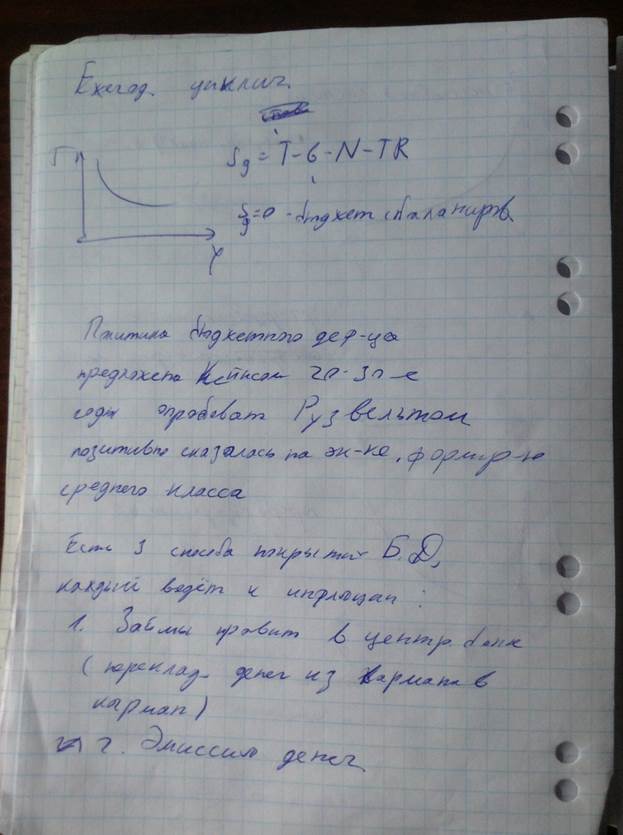 Ежегод. циклич.
Sg = T - G - N - TR
Г
Sg=0 - бюджет сбалансиров.
Y
Политика бюджетного деф-ца
предложена Кейнсом 20-30-е
годы опробован Рузвельтом
позитивно сказалась на эк-ке, формир-ю
среднего класса
Есть 3 способа покрытия Б.D,
каждый ведёт к инфляции:
1. Займы правит в центр. банк
(переклад. денег из кармана в
карман)
2. Эмиссия денег